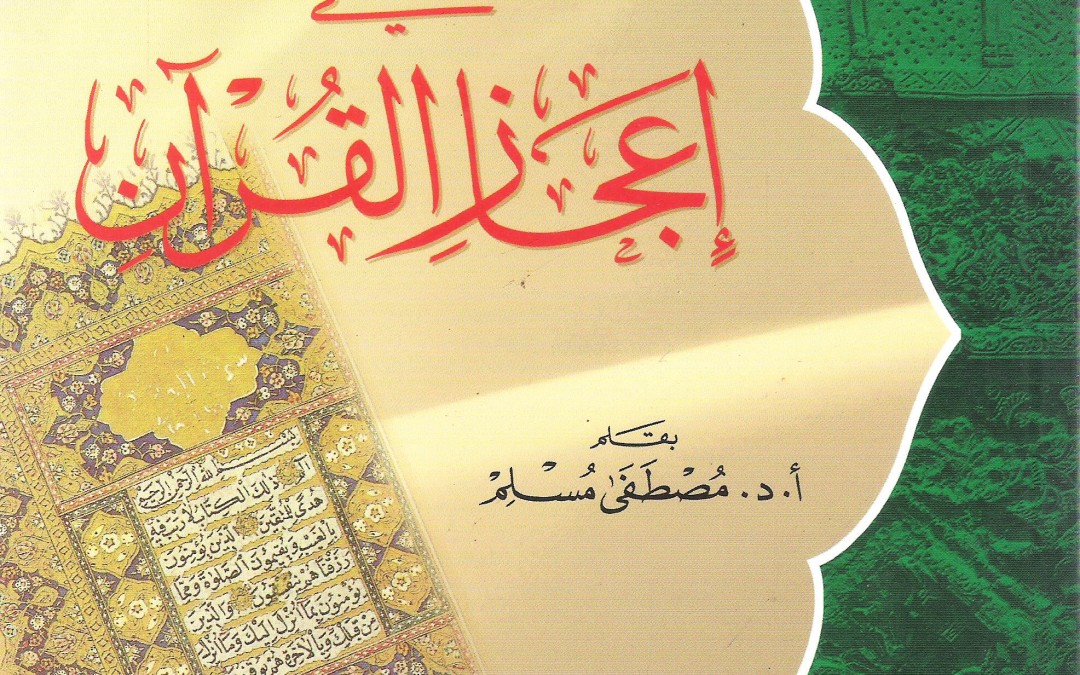 في
إعجاز القرآن
بقلم
أ. د. مُصْطَفَىٰ مُسْلِم
بسم الله الرحمن الرحيم
الم ذلك الكتاب لا ريب فيه
هدى للمتقين الذين يؤمنون
بالغيب ويقيمون الصلوة ومما
رزقناهم ينفقون والذين
يؤمنون بما أنزل إليك وما أنزل
من قبلك وبالآخرة هم يوقنون